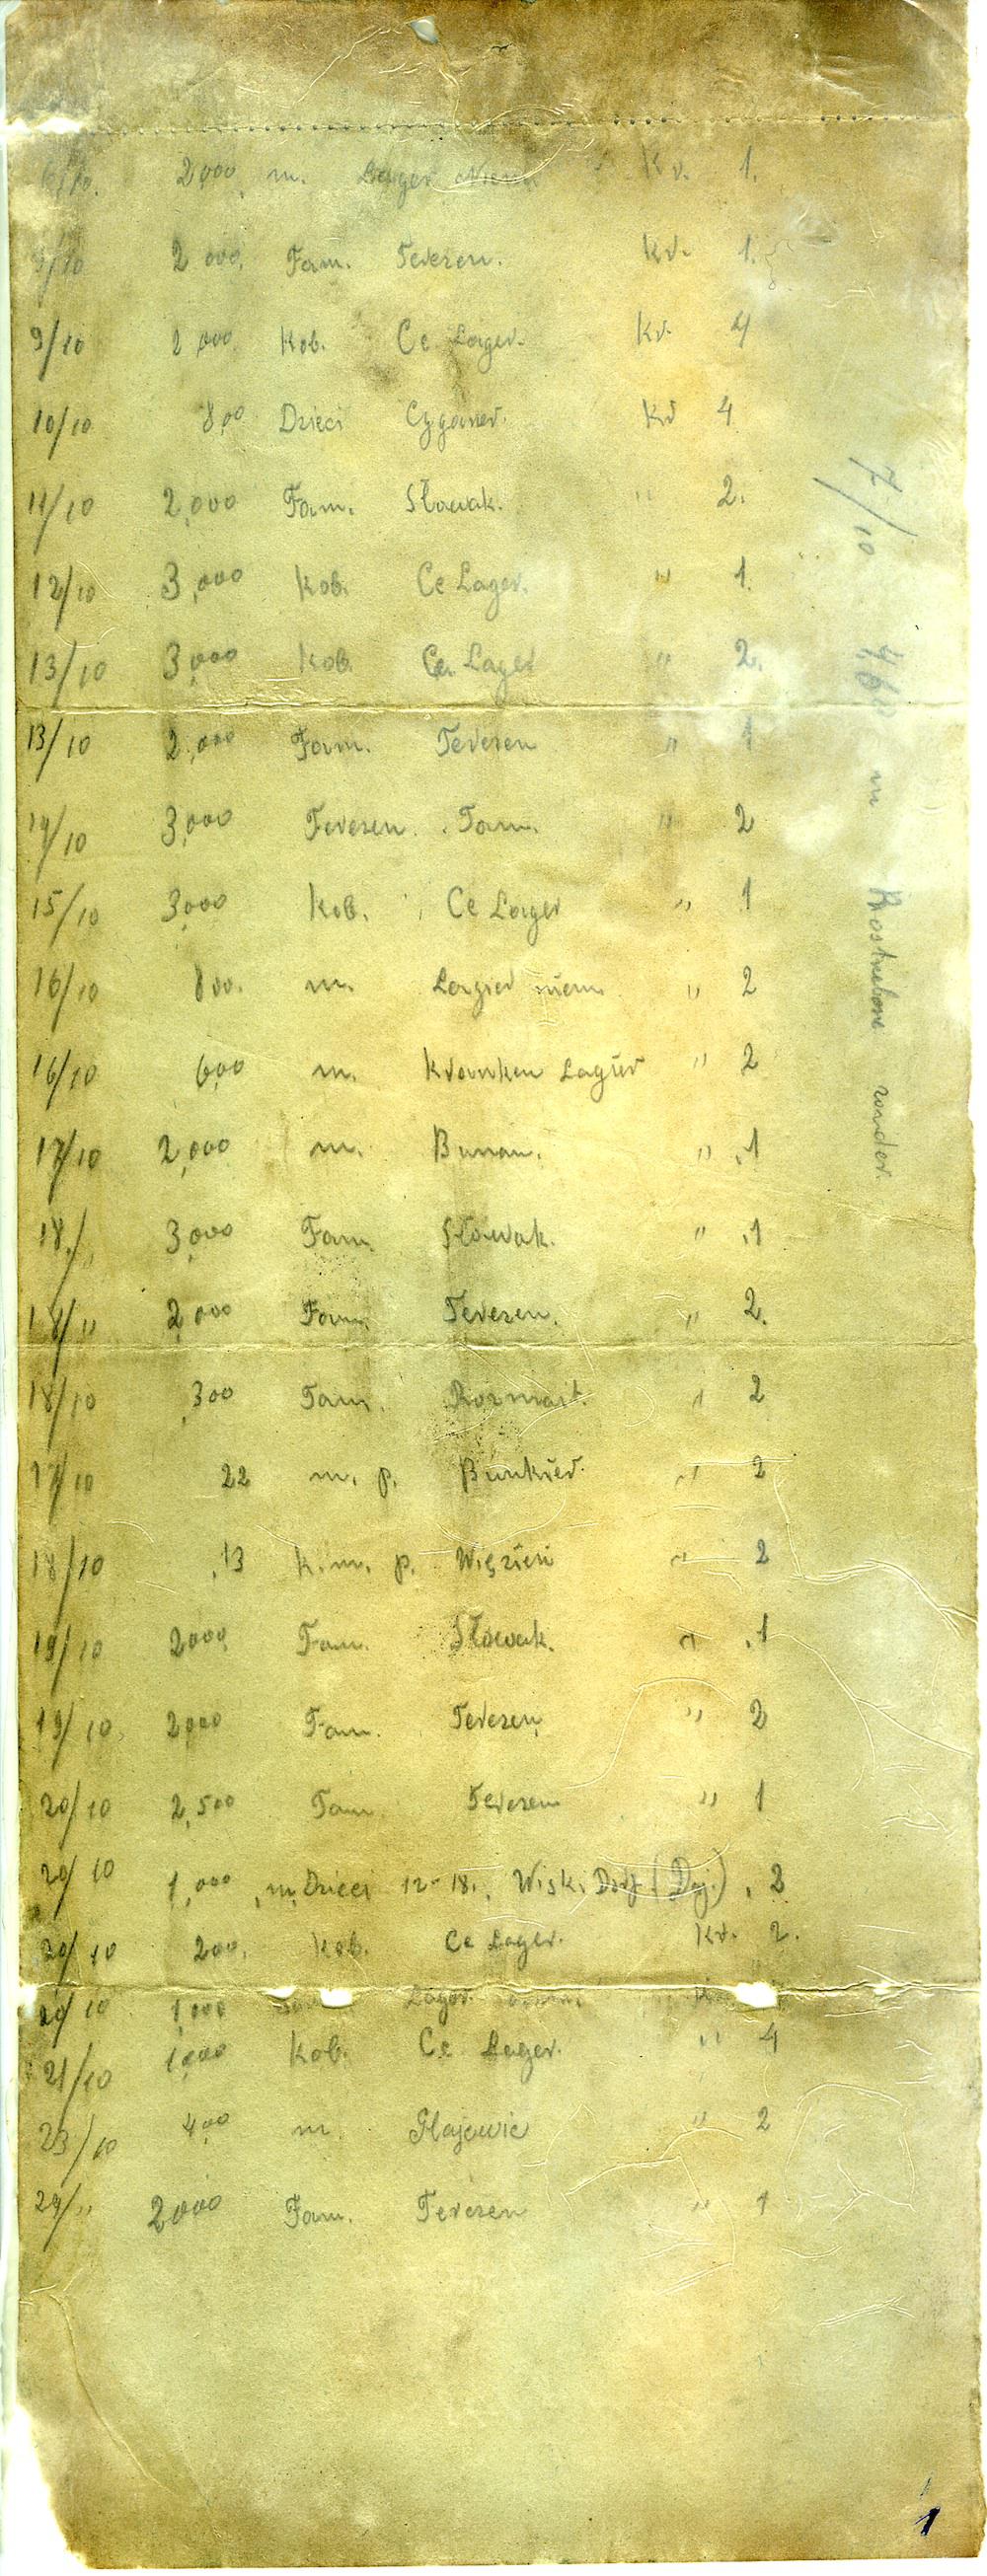 6/10. 2,000 m. Lager Kr. 1.
9/10 2 000, Fam. Teresen. Kr. 1.
9/10 2,000 Kob. Ce Lager. Kr 4
10/10 8,00 Dzieci Cyganer. Kr 4
11/10 2,000 Fam. Słowak. " 2.
12/10 3,000 Kob. Ce Lager. " 1.
13/10 3,000 Kob. Ce. Lager " 2.
13/10 2,000 Fam. Teresen " 1
14/10 3,000 Teresen Fam. " 2
15/10 3,000 Kob. Ce Lager " 1
16/10 800. m. Lagier niem " 2
16/10 6,00 m. Kranken Lagier " 2
17/10 2,000 m. Bunau. " 1
18./" 3,000 Fam. Słowak. " 1
18/" 2,000 Fam. Teresen. " 2.
18/10 300 Fam. " 2
17/10 22 m. p. Bunkier. " 2
18/10 13 K. m. p. Więzień " 2
19/10 2000 Fam. Słowak. " 1
19/10 2,000 Fam. Teresen " 2
20/10 2,500 Fam Teresen " 1
20/10 1,000 m, Dzieci 12-18. Dorf 2
20/10 200, Kob. Ce Lager. Kr. 2.
20/10 1,000 Lager
21/10 1,000 Kob. Ce Lager. " 4
23/10 4,00 m. " 2
24/" 2,000 Fam. Teresen " 1
7/10 460 m zonder.
1